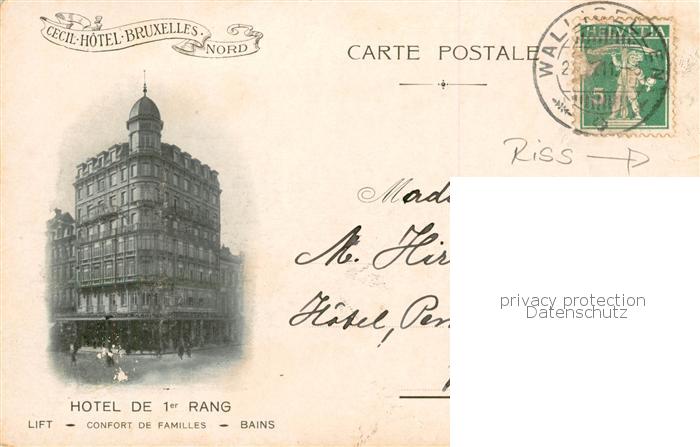 CECIL·HÔTEL·BRUXELLES·
NORD
CARTE POSTALE
HELVETIA
5
Riss
M. Hir
Hôtel, Pen
privacy protection
Datenschutz
HOTEL DE 1er RANG
LIFT - CONFORT DE FAMILLES - BAINS